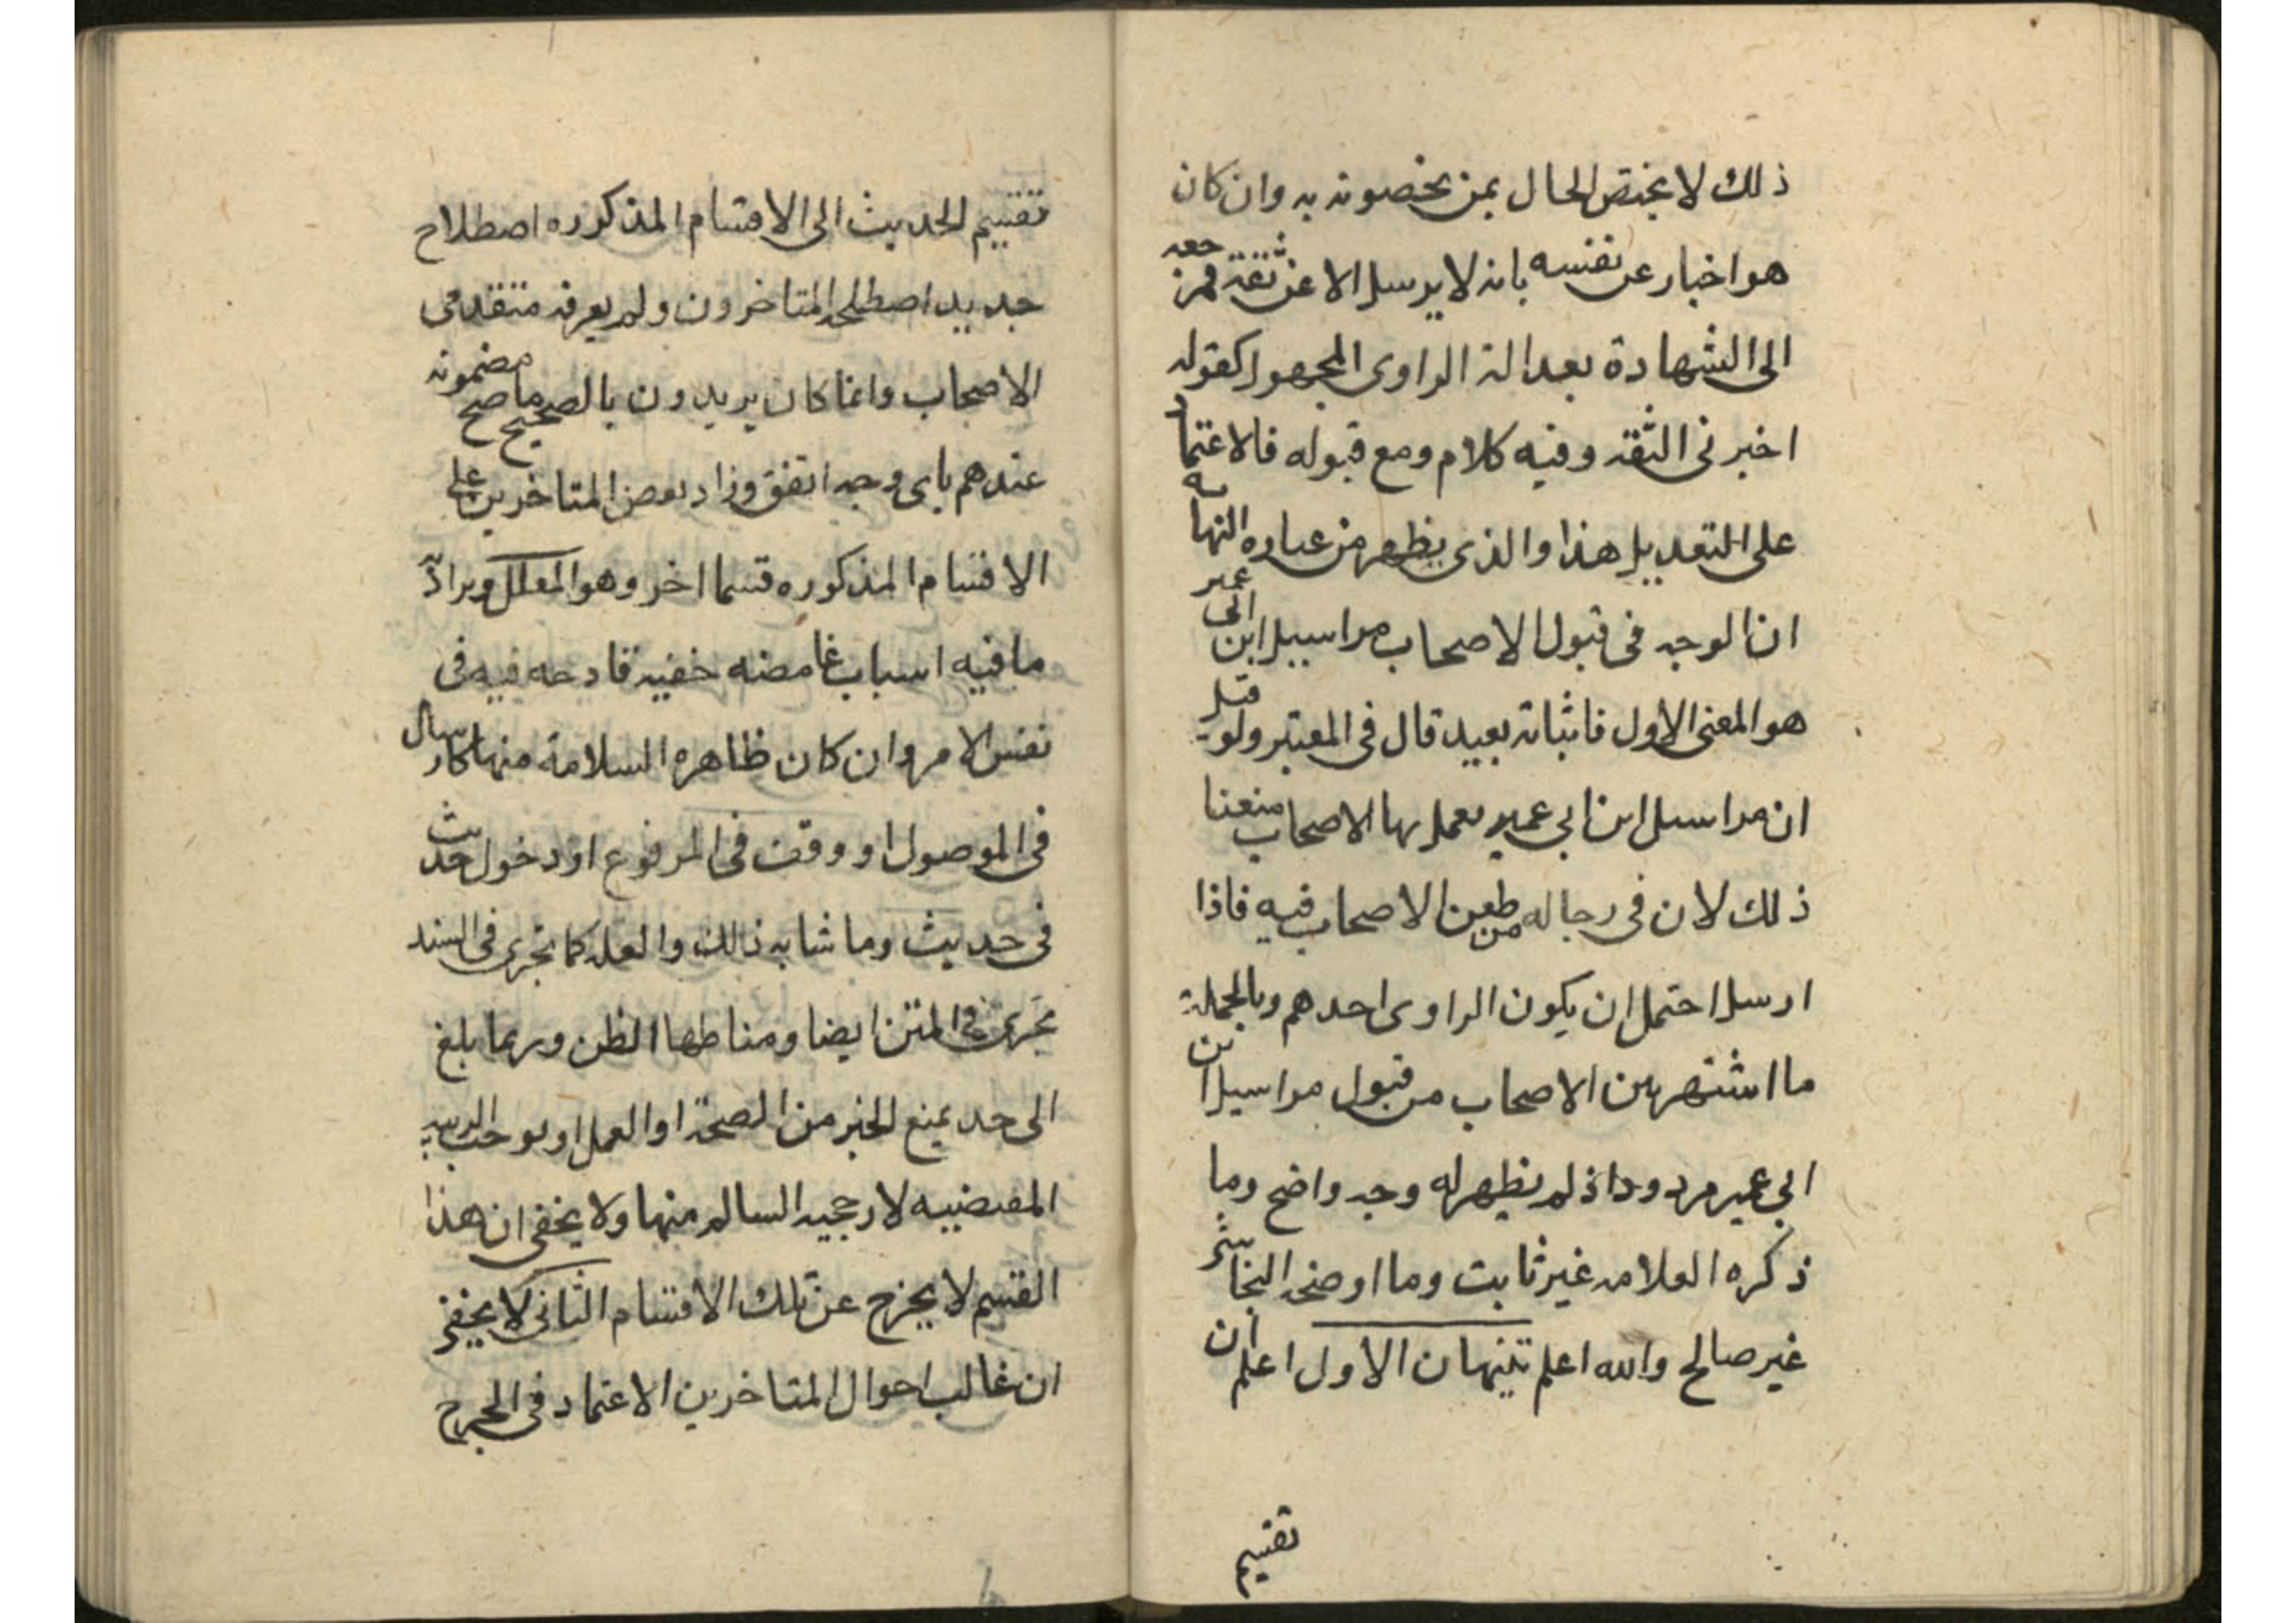 ذلك لا يختص الحال بمن يخصونه به وان كان
هو اخبار عن نفسه بانه لا يرسل الا عن ثقة فمرجعه
الى الشهادة بعدالة الراوى المجهول كقوله
اخبرنى الثقه وفيه كلام ومع قبوله فالاعتماد
على التعديل هذا والذى يظهر من عباره النهايه
ان الوجه فى قبول الاصحاب مراسيل ابن ابى عمير
هو المعنى الاول فاثباته بعيد قال فى المعتبر ولو قيل
ان مراسيل ابن ابى عمير يعمل بها الاصحاب منعنا
ذلك لان فى رجاله من طعن الاصحاب فيه فاذا
ارسل احتمل ان يكون الراوى احدهم وبالجملة
ما اشتهر بين الاصحاب من قبول مراسيل ابن
ابى عمير مردود اذ لم يظهر له وجه واضح وما
ذكره العلامه غير ثابت وما اوضحه النجاشى
غير صالح والله اعلم تنبيهان الاول اعلم ان
تقسيم
تقسيم الحديث الى الاقسام المذكوره اصطلاح
جديد اصطلحه المتاخرون ولم يعرفه متقدمى
الاصحاب وانما كان يريدون بالصحيح ما صح مضمونه
عندهم باى وجه اتفق وزاد بعض المتاخرين على
الاقسام المذكوره قسما اخر وهو المعلل ويراد
ما فيه اسباب غامضه خفيه قادحه فيه فى
نفس الامر وان كان ظاهره السلامة منها كارسال
فى الموصول او وقف فى المرفوع او دخول حديث
فى حديث وما شابه ذلك والعله كما تجرى فى السند
تجرى فى المتن ايضا ومناطها الظن وربما بلغ
الى حد يمنع الخبر من الصحة او العمل او يوجب الريبه
المقتضييه لارجحيه السالم منها ولا يخفى ان هذا
القسم لا يخرج عن تلك الاقسام الثانى لا يخفى
ان غالب احوال المتاخرين الاعتماد فى الجرح